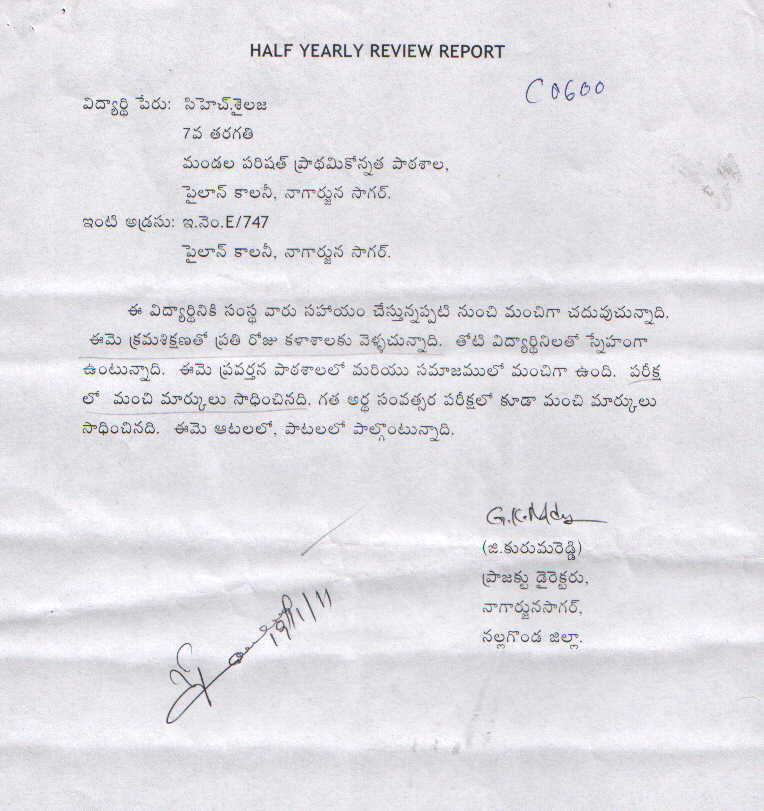 HALF YEARLY REVIEW REPORT
C0600
విద్యార్థి పేరు: సిహెచ్.శైలజ
7వ తరగతి
మండల పరిషత్ ప్రాథమికోన్నత పాఠశాల,
పైలాన్ కాలనీ, నాగార్జున సాగర్.
ఇంటి అడ్రసు: ఇ.నెం.E/747
పైలాన్ కాలనీ, నాగార్జున సాగర్.
ఈ విద్యార్థినికి సంస్థ వారు సహాయం చేస్తున్నప్పటి నుంచి మంచిగా చదువుచున్నాది.
ఈమె క్రమశిక్షణతో ప్రతి రోజు కళాశాలకు వెళ్ళచున్నాది. తోటి విద్యార్థినిలతో స్నేహంగా
ఉంటున్నాది. ఈమె ప్రవర్తన పాఠశాలలో మరియు సమాజములో మంచిగా ఉంది. పరీక్ష
లో మంచి మార్కులు సాధించినది. గత అర్థ సంవత్సర పరీక్షలో కూడా మంచి మార్కులు
సాధించినది. ఈమె ఆటలలో, పాటలలో పాల్గొంటున్నాది.
(జి.కురుమరెడ్డి)
ప్రాజక్టు డైరెక్టరు,
నాగార్జునసాగర్,
నల్లగొండ జిల్లా.